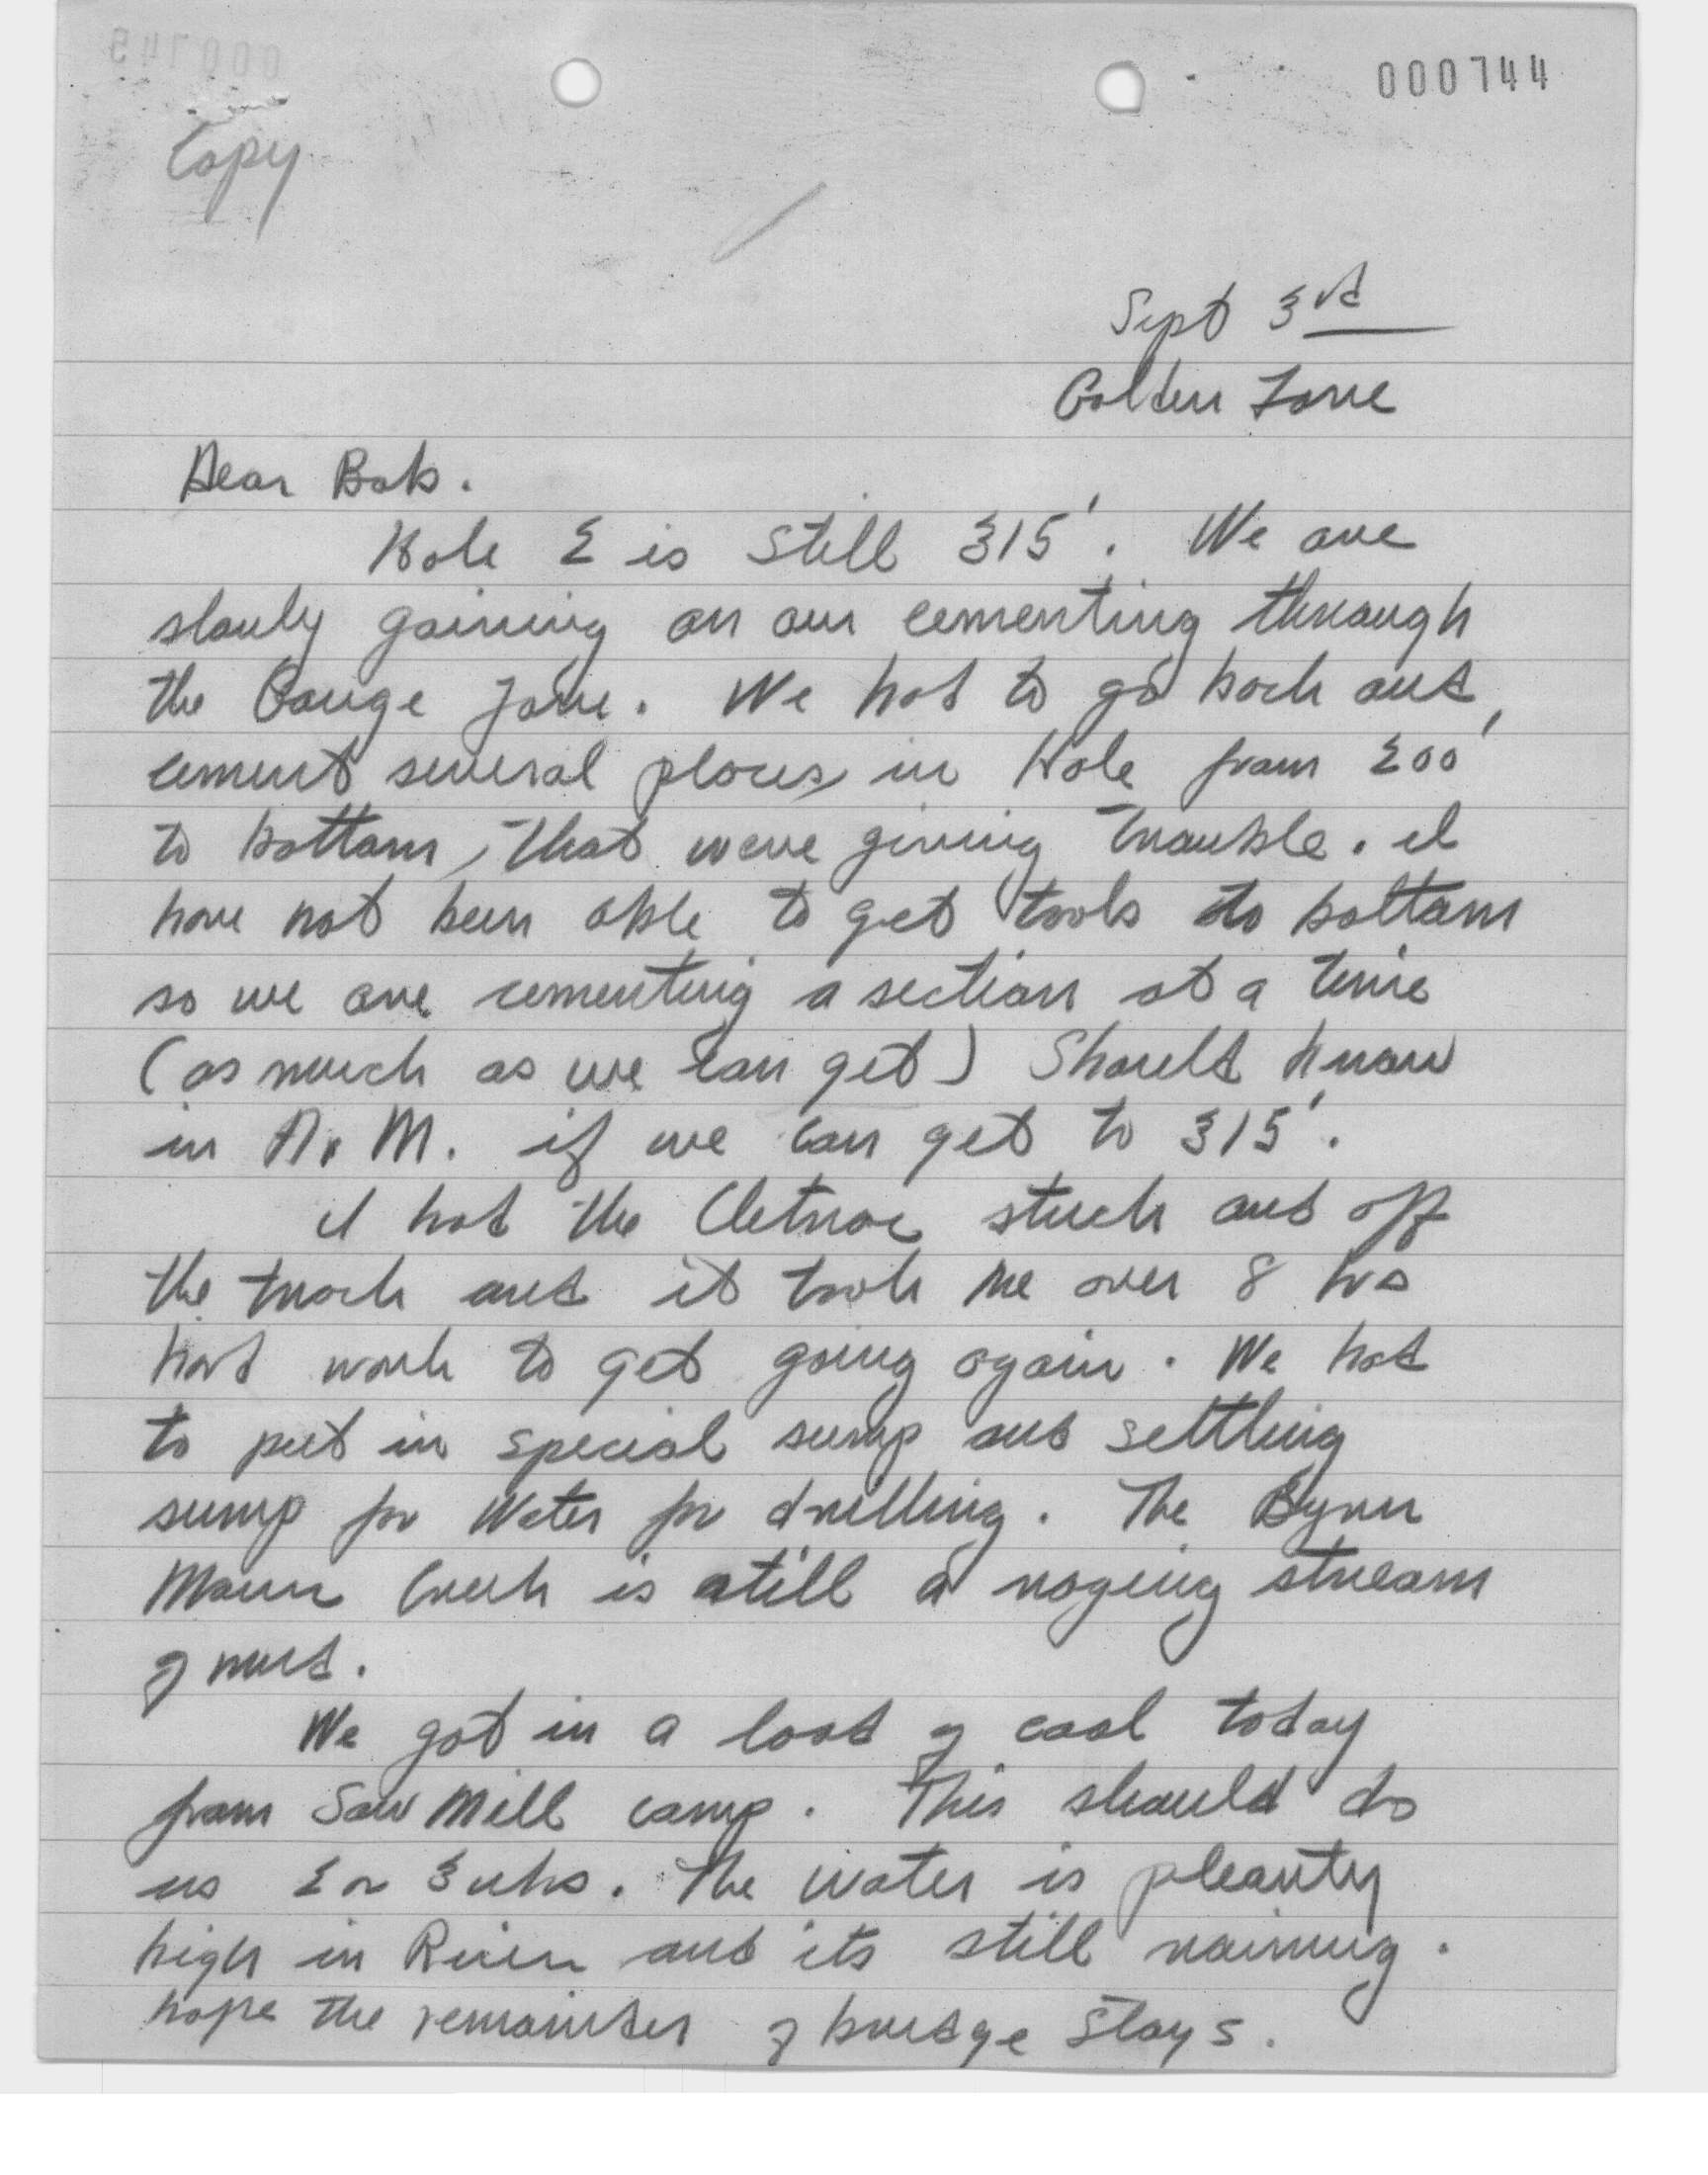 000744
Copy
Sept 3rd
Golden Zone
Dear Bob.
Hole 2 is still 315'. We are
slowly gaining on our cementing through
the Gouge Zone. We had to go back and
cement several places in Hole from 200'
to bottom, that were giving trouble. I
have not been able to get tools to bottom
so we are cementing a section at a time
(as much as we can get) Should know
in A. M. if we can get to 315'.
I had the Cletrac stuck and off
the track and it took me over 8 hrs
hard work to get going again. We had
to put in special sump and settling
sump for Water for drilling. The Bynn
Mawr Creek is still a raging stream
of mud.
We got in a load of coal today
from Saw Mill camp. This should do
us 2 or 3 wks. The water is pleanty
high in River and its still raining.
hope the remainder of bridge stays.